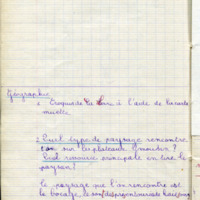 Géographie
1. Croquis de à l'aide de la carte
murale
2. Quel type de paysage rencontre
on sur les plateaux ?
Quel principale en tire le
paysan?
Le paysage que l'on rencontre est
le bocage,